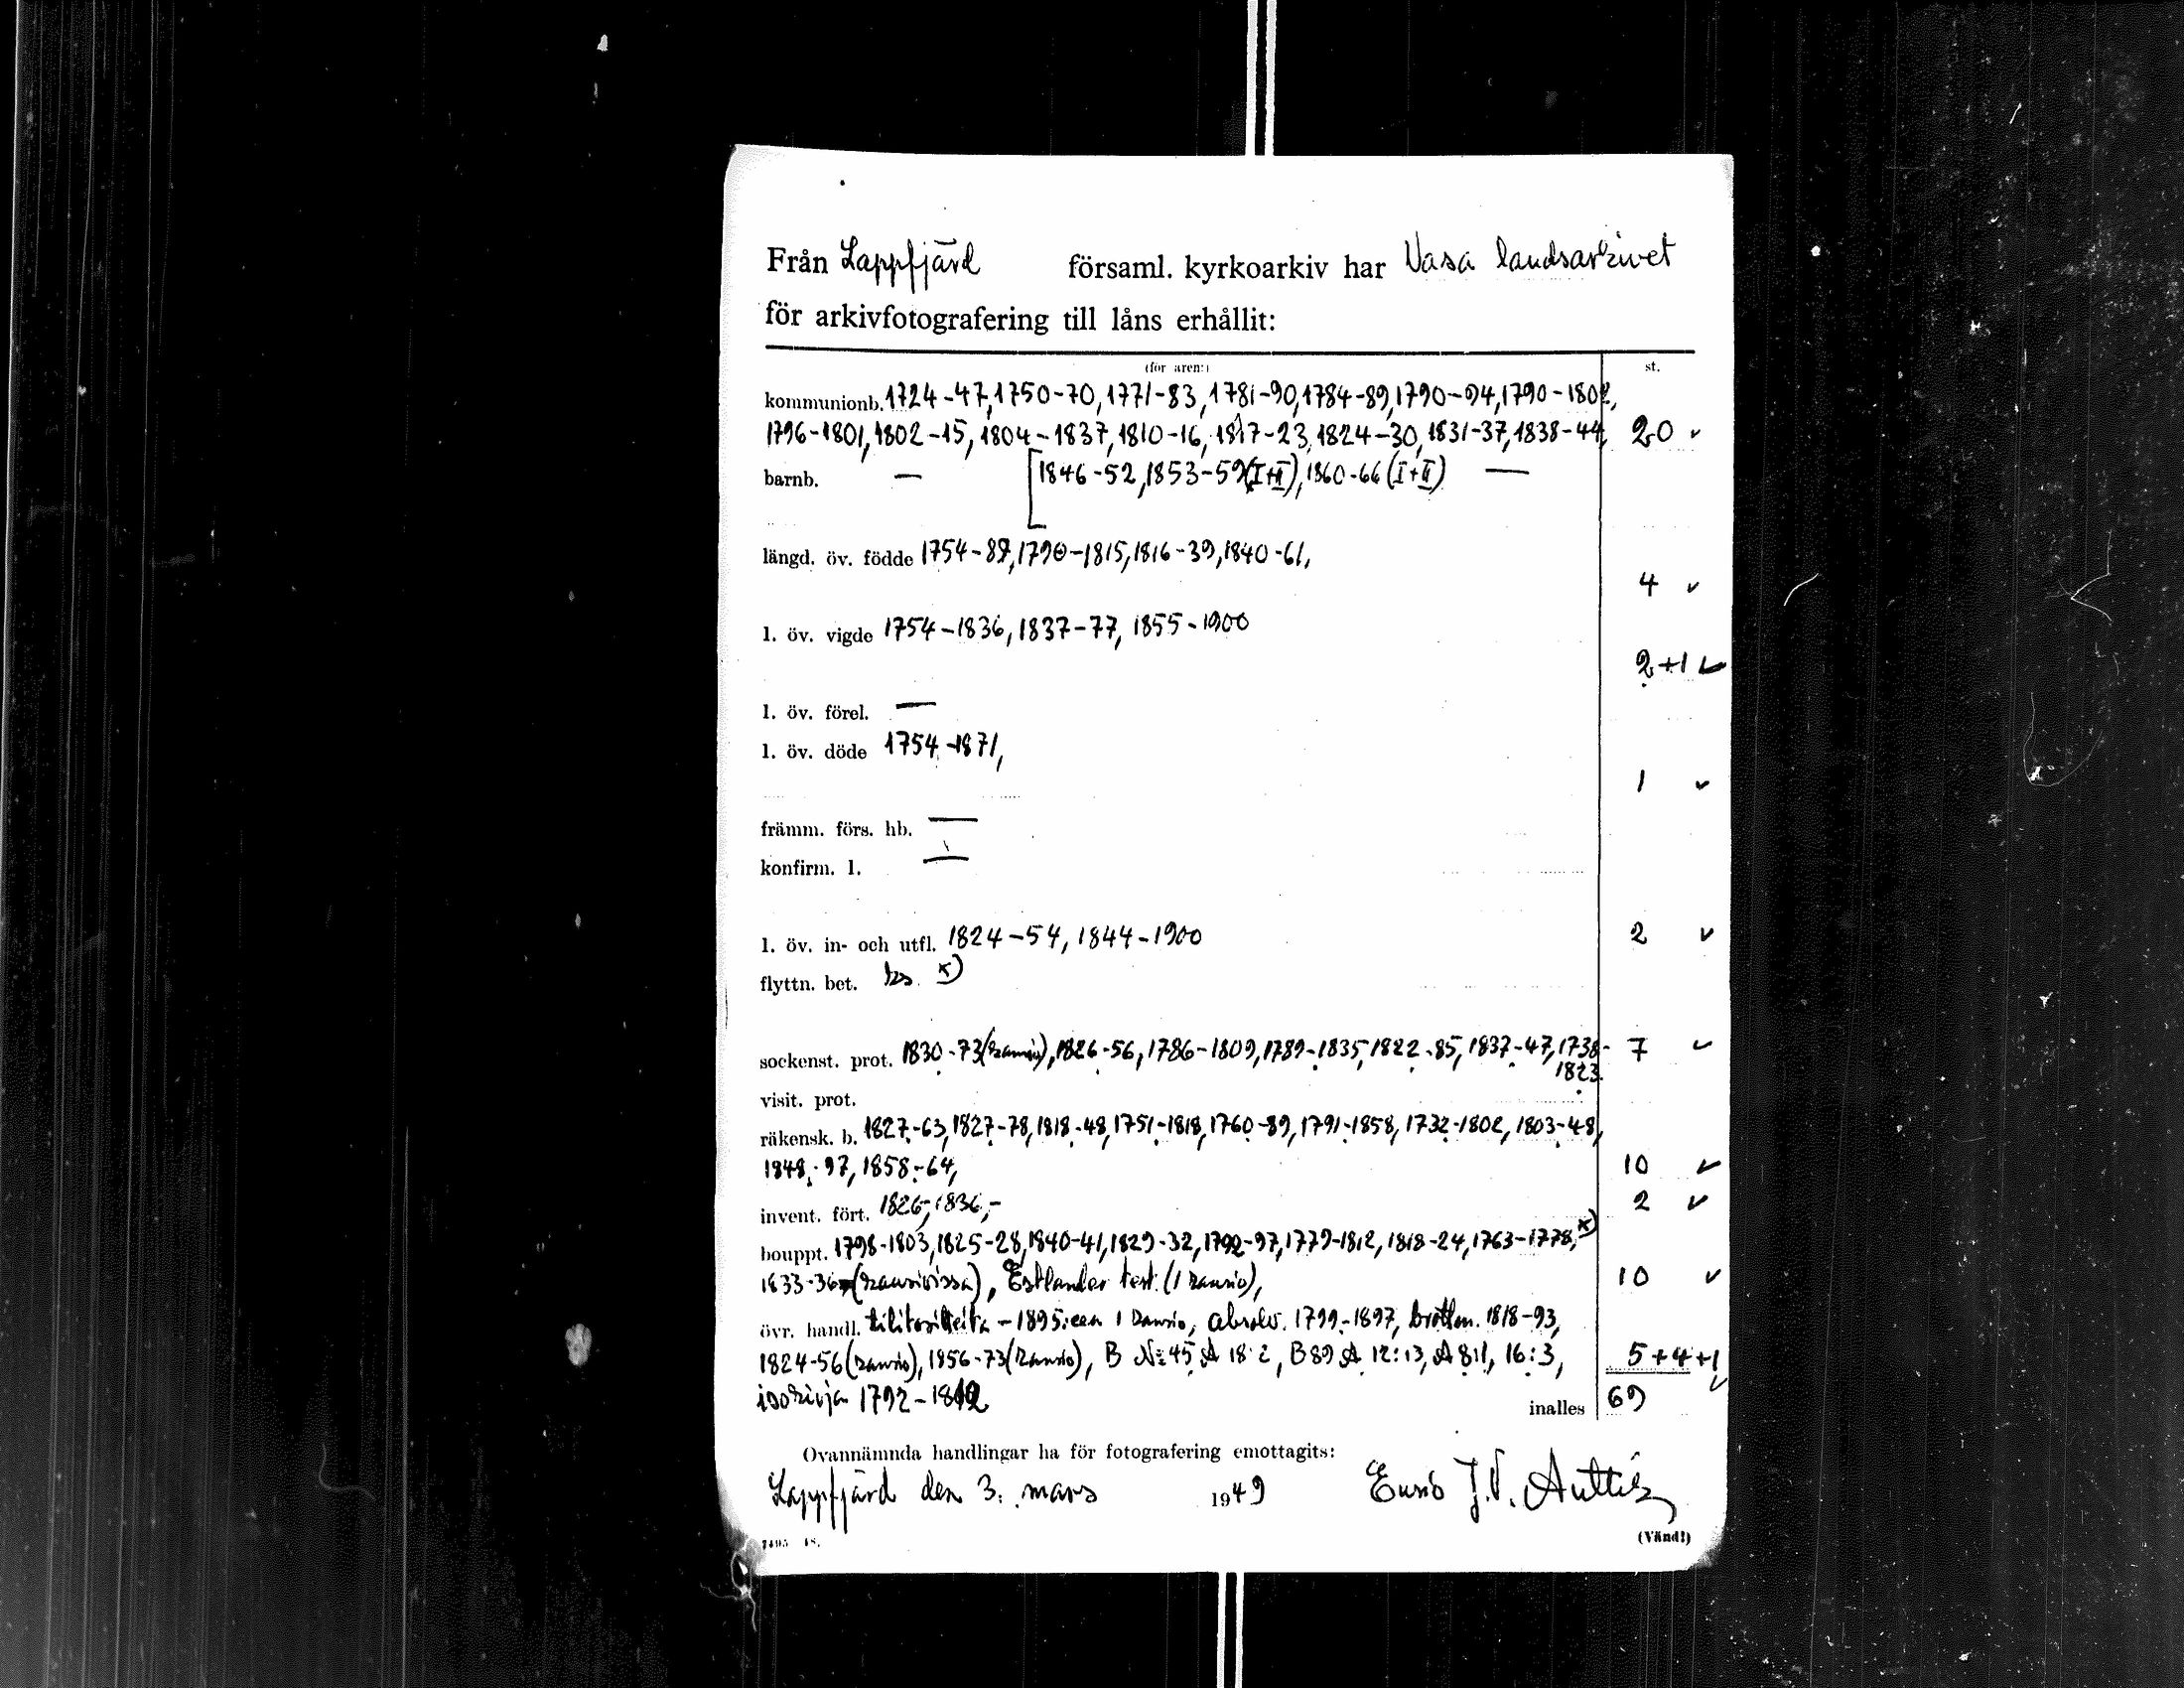 Från Lappfjärd församl. kyrkoarkiv har Vasa landsarkivet
för arkivfotografering till låns erhållit:
(för åren:) st.
kommunionb. 1724-47, 1750-70, 1771-83, 1781-90, 1784-89, 1790-94, 1790-1802,
1796-1801, 1802-15, 1804-1837, 1810-16, 1817-23, 1824-30, 1831-37, 1838-44, 20 ✓
barnb. — [1846-52, 1853-59 (I+II), 1860-66 (I+II) —
längd. öv. födde 1754-89, 1790-1815, 1816-39, 1840-61,
4 ✓
l. öv. vigde 1754-1836, 1837-77, 1855-1900
2+1 ✓
l. öv. förel. —
l. öv. döde 1754-1871,
1 ✓
främm. förs. hb. —
konfirm. l. —
l. öv. in- och utfl. 1824-54, 1844-1900 2 ✓
flyttn. bet. ks. x)
sockenst. prot. 1830-73 (kansio), 1826-56, 1786-1809, 1789-1835, 1822-85, 1837-47, 1738- 7 ✓
1823.
visit. prot.
räkensk. b. 1827-63, 1827-78, 1818-48, 1751-1818, 1760-89, 1791-1858, 1732-1802, 1803-48,
1848-97, 1858-64, 10 ✓
invent. fört. 1826-, 1836,- 2 ✓
bouppt. 1798-1803, 1825-28, 1840-41, 1829-32, 1792-97, 1779-1812, 1818-24, 1763-1778, x)
1833-36 (kansivissa), Estlander test. (1 kansio), 10 ✓
övr. handl. tilitositteita -1895:een 1 kansio, absolv. 1799-1897, brottm. 1818-93,
1824-56 (kansio), 1856-73 (kansio), B No 45 A 18:2, B89 A 12:13, A 8:1, 16:3, 5+4+1 ✓
isokirja 1792-1812 inalles 69
Ovannämnda handlingar ha för fotografering emottagits:
Lappfjärd den 3. mars 1949 J.V.
(Vänd!)